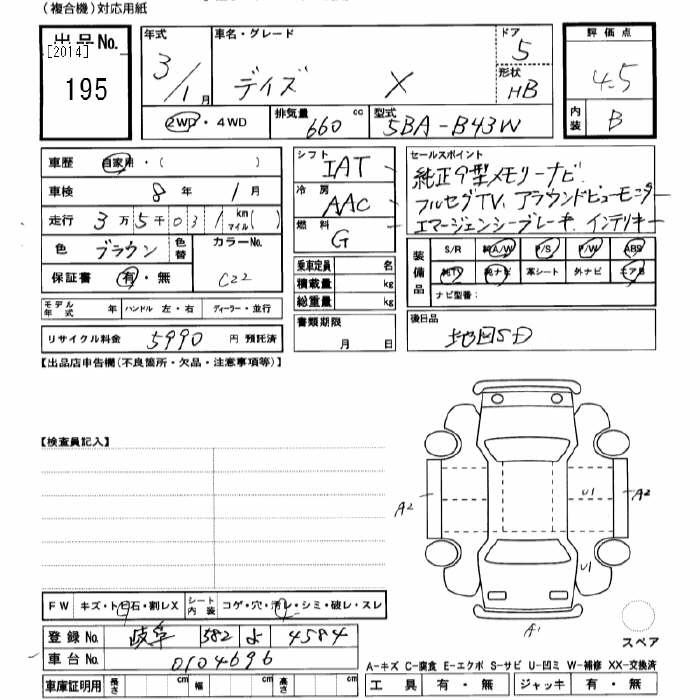 (複合機)対応用紙
出品No.
[2014]
195
年式
3/1月
車名・グレード
デイズ X
ドア
5
形状
HB
2WD・4WD
排気量
660 cc
型式
5BA-B43W
評価点
4.5
内装
B
車歴 自家用・( )
車検 8年 1月
走行 3万5千031 km マイル( )
色 ブラウン 色替
カラーNo. C22
保証書 有・無
モデル年式 年 ハンドル 左・右 ディーラー・並行
リサイクル料金 5990 円 預託済
シフト IAT
冷房 AAC
燃料 G
乗車定員 名
積載量 kg
総重量 kg
書類期限
月 日
セールスポイント
純正9型メモリーナビ
フルセグTV、アラウンドビューモニター
エマージェンシーブレーキ、インテリキー
装備品
S/R 純A/W P/S P/W ABS
純TV 純ナビ 革シート 外ナビ エアB
ナビ型番:
後日品
地図SD
【出品店申告欄(不良箇所・欠品・注意事項等)】
【検査員記入】
A2
U1
A2
U1
A1
スペア
FW キズ・トビ石・割レX
シート内装 コゲ・穴・汚レ・シミ・破レ・スレ
登録No. 岐阜 582 よ 4584
車台No. 0104696
車庫証明用 長さ cm 幅 cm 高さ cm
A-キズ C-腐食 E-エクボ S-サビ U-凹ミ W-補修 XX-交換済
工具 有・無 ジャッキ 有・無